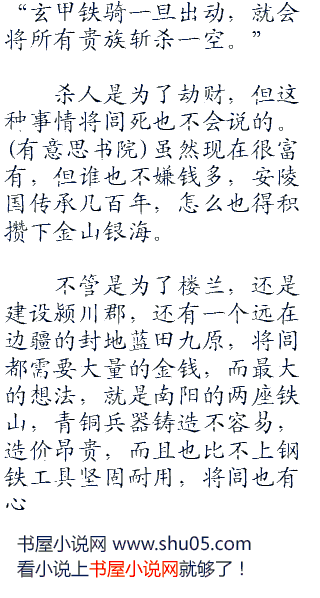 “玄甲铁骑一旦出动，就会
将所有贵族斩杀一空。”
杀人是为了劫财，但这
种事情将闾死也不会说的。
(有意思书院)虽然现在很富
有，但谁也不嫌钱多，安陵
国传承几百年，怎么也得积
攒下金山银海。
不管是为了楼兰，还是
建设颍川郡，还有一个远在
边疆的封地蓝田九原，将闾
都需要大量的金钱，而最大
的想法，就是南阳的两座铁
山，青铜兵器铸造不容易，
造价昂贵，而且也比不上钢
铁工具坚固耐用，将闾也有
心
书屋小说网 www.shu05.com
看小说上书屋小说网就够了！